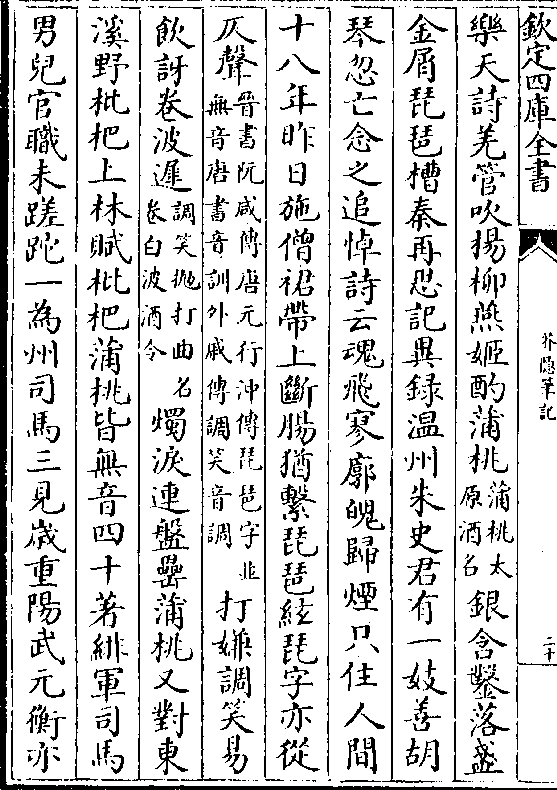 欽定四庫全書
芥隱筆記
二十
樂天詩羌管吹楊柳燕姬酌蒲桃蒲桃太原酒名銀含鑿落盞
金屑琵琶槽秦再思記異録温州朱史君有一妓善胡
琴忽亡念之追悼詩云魂飛寥廓魄歸煙只住人間
十八年昨日施僧裙帶上斷腸猶繫琵琶絃琵字亦從
仄聲晉書阮咸傳唐元行沖傳琵琶字並無音唐書音訓外戚傳調笑音調打嫌調笑易
飲訝卷波遲調笑抛打曲名卷白波酒令燭淚連盤壘蒲桃又對東
溪野枇杷上林賦枇杷蒲桃皆無音四十著緋軍司馬
男兒官職未蹉跎一為州司馬三見嵗重陽武元衡亦